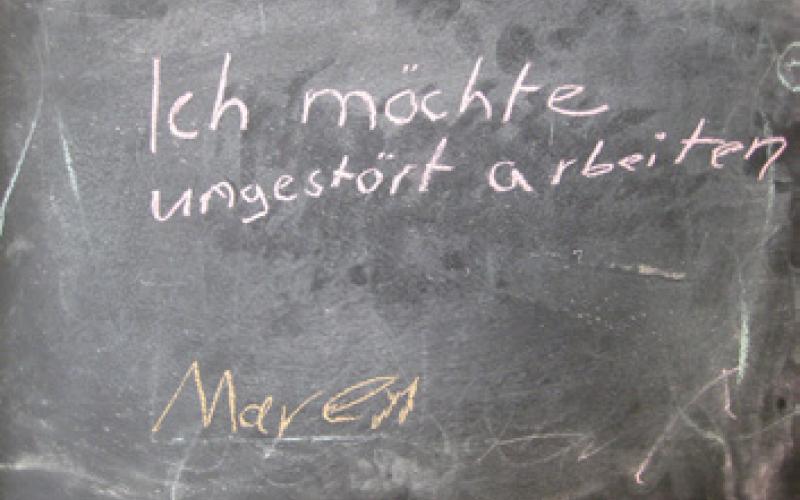 Ich möchte
ungestört arbeiten
Maren